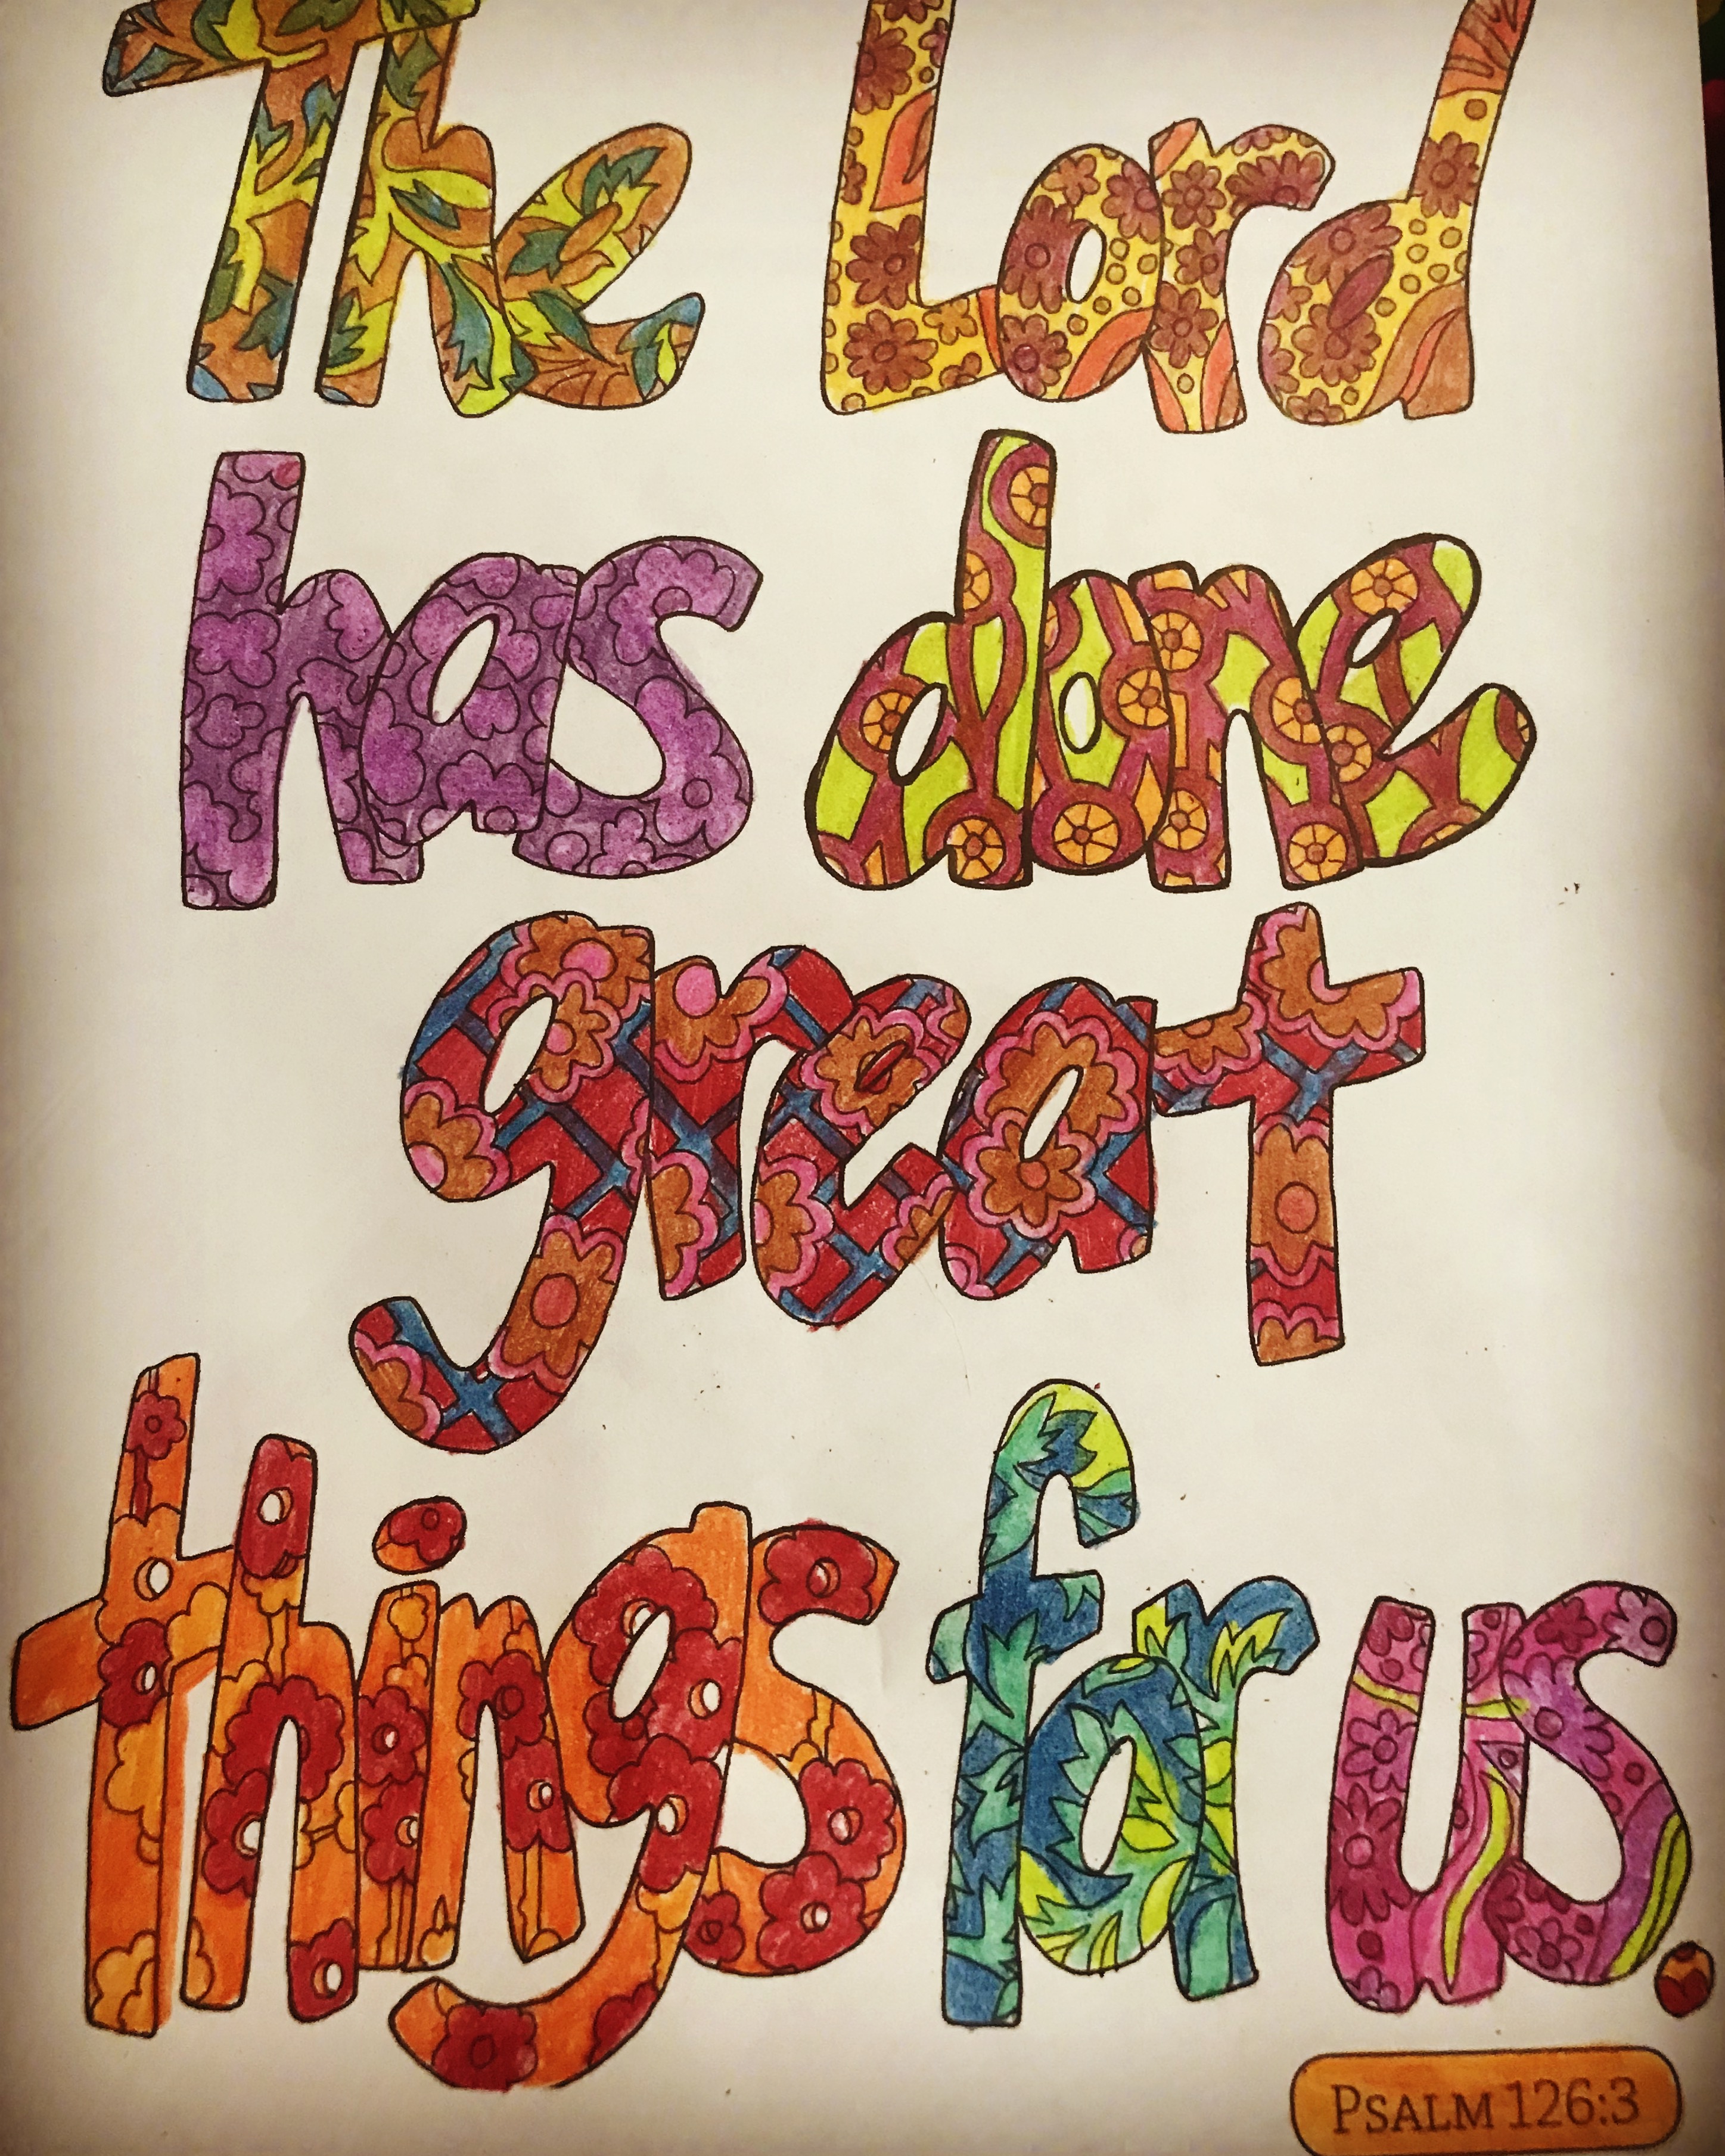 The Lord
has done
great
things for us.
PSALM 126:3